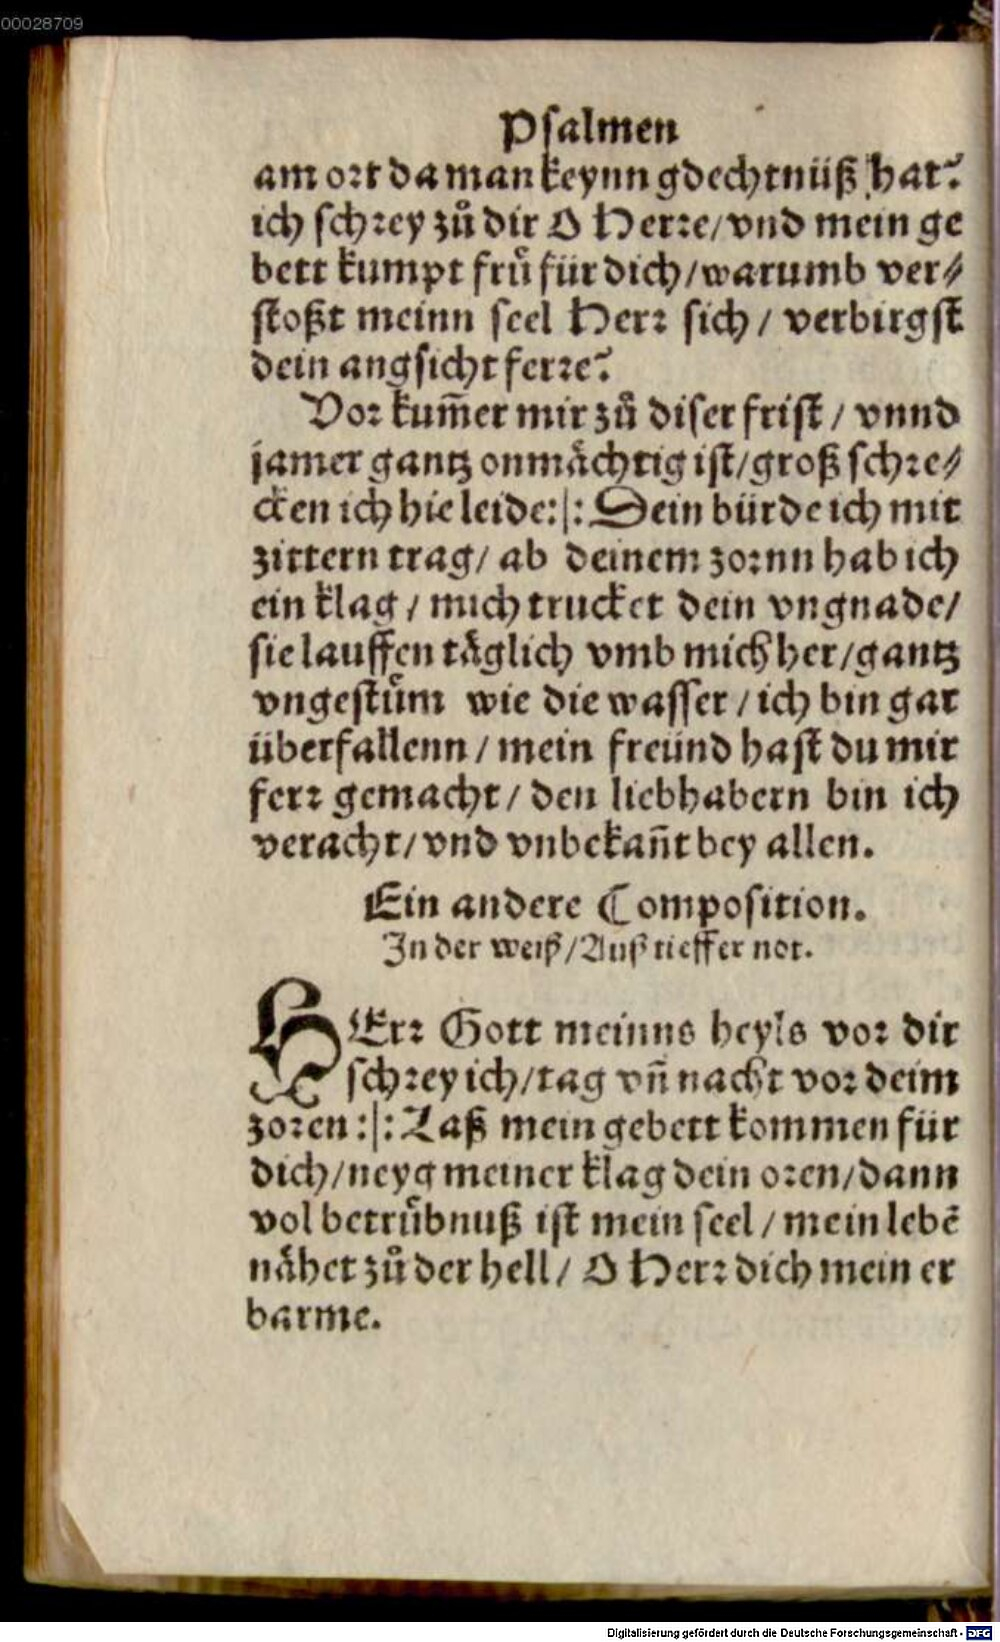 00028709
Psalmen
am ort da man keynn gdechtnüß hat?
ich schrey zů dir O Herre/vnd mein ge
bett kumpt frů für dich/warumb ver⸗
stoßt meinn seel Herr sich / verbirgst
dein angsicht ferre?
Vor kum̄er mir zů diser frist / vnnd
jamer gantz onmåchtig ist/groß schre⸗
cken ich hie leide:|: Dein bürde ich mit
zittern trag/ ab deinem zornn hab ich
ein klag / mich trucket dein vngnade/
sie lauffen tåglich vmb mich her/gantz
vngestům wie die wasser / ich bin gar
überfallenn / mein freünd hast du mir
ferr gemacht / den liebhabern bin ich
veracht/ vnd vnbekan̄t bey allen.
Ein andere Composition.
In der weiß/Auß tieffer not.
HErr Gott meinns heyls vor dir
schrey ich/tag vn̄ nacht vor deim
zoren :|: Laß mein gebett kommen für
dich/neyg meiner klag dein oren/dann
vol betrůbnuß ist mein seel / mein lebē
nåhet zů der hell/ O Herr dich mein er
barme.
Digitalisierung gefördert durch die Deutsche Forschungsgemeinschaft - DFG